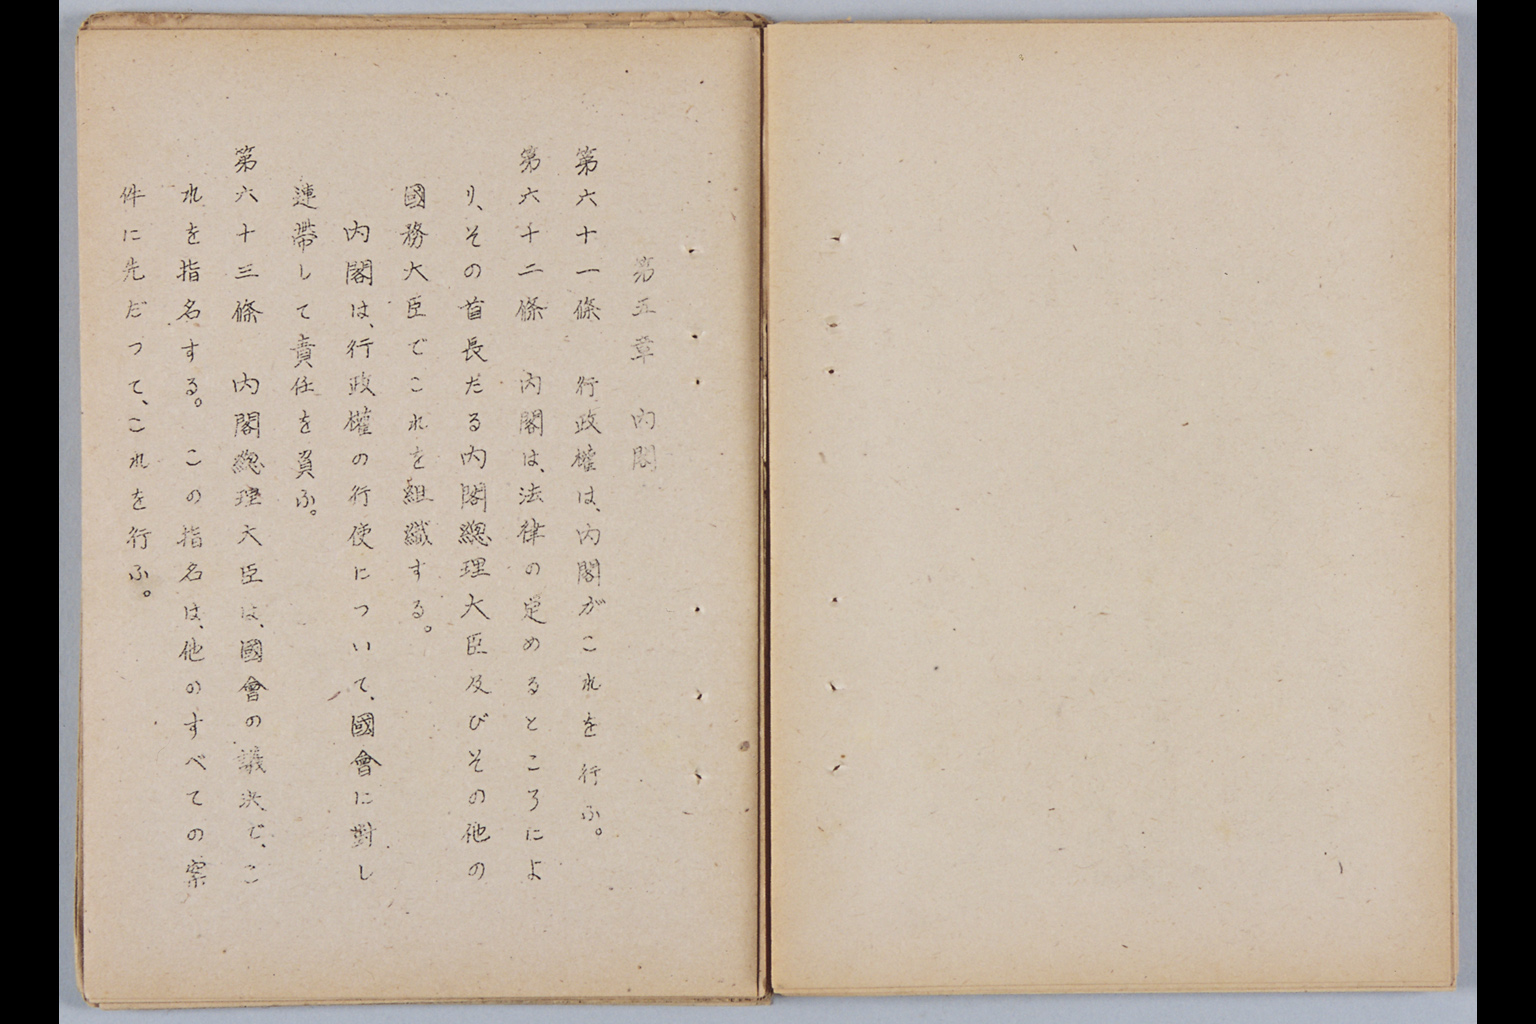 第五章　内閣
第六十一條　行政權は、内閣がこれを行ふ。
第六十二條　内閣は、法律の定めるところによ
り、その首長たる内閣總理大臣及びその他の
國務大臣でこれを組織する。
内閣は、行政權の行使について、國會に對し
連帶して責任を負ふ。
第六十三條　内閣總理大臣は、國會の議決で、こ
れを指名する。この指名は、他のすべての案
件に先だつて、これを行ふ。